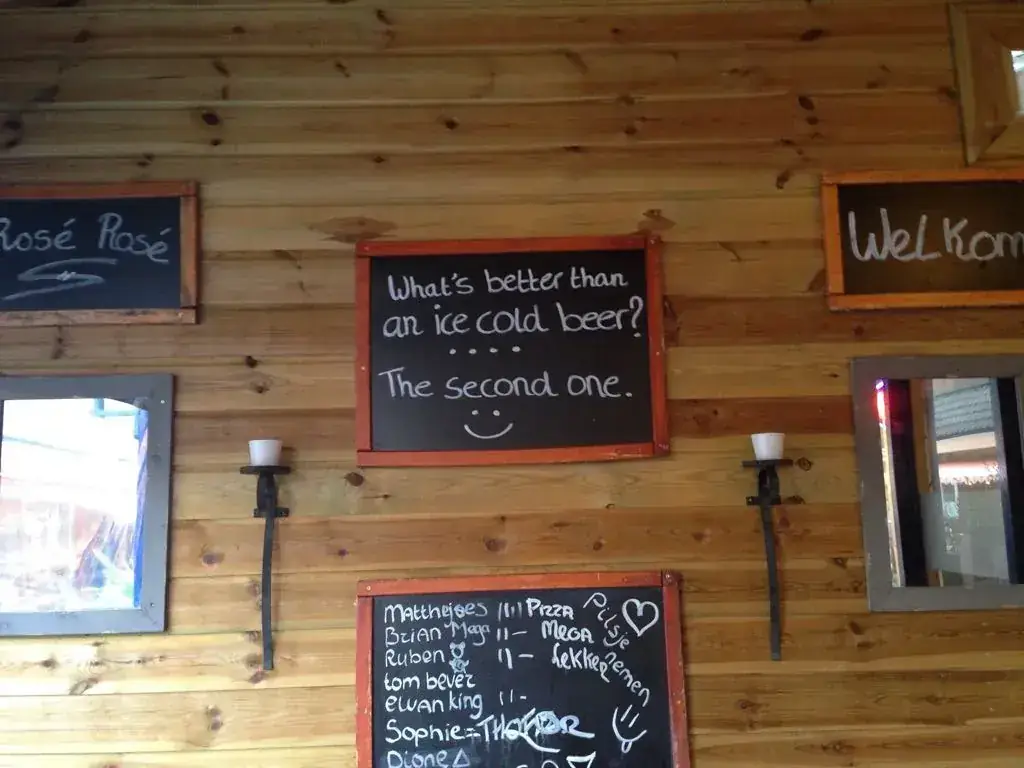 Rosé Rosé
What's better than
an ice cold beer?
....
The second one.
WeLKom
Matthejoes PIZZA
BRIAN Mega MEGA
Ruben LEKKER
tom bever
elvan king
Sophie=
Dione
Pilsje nemen